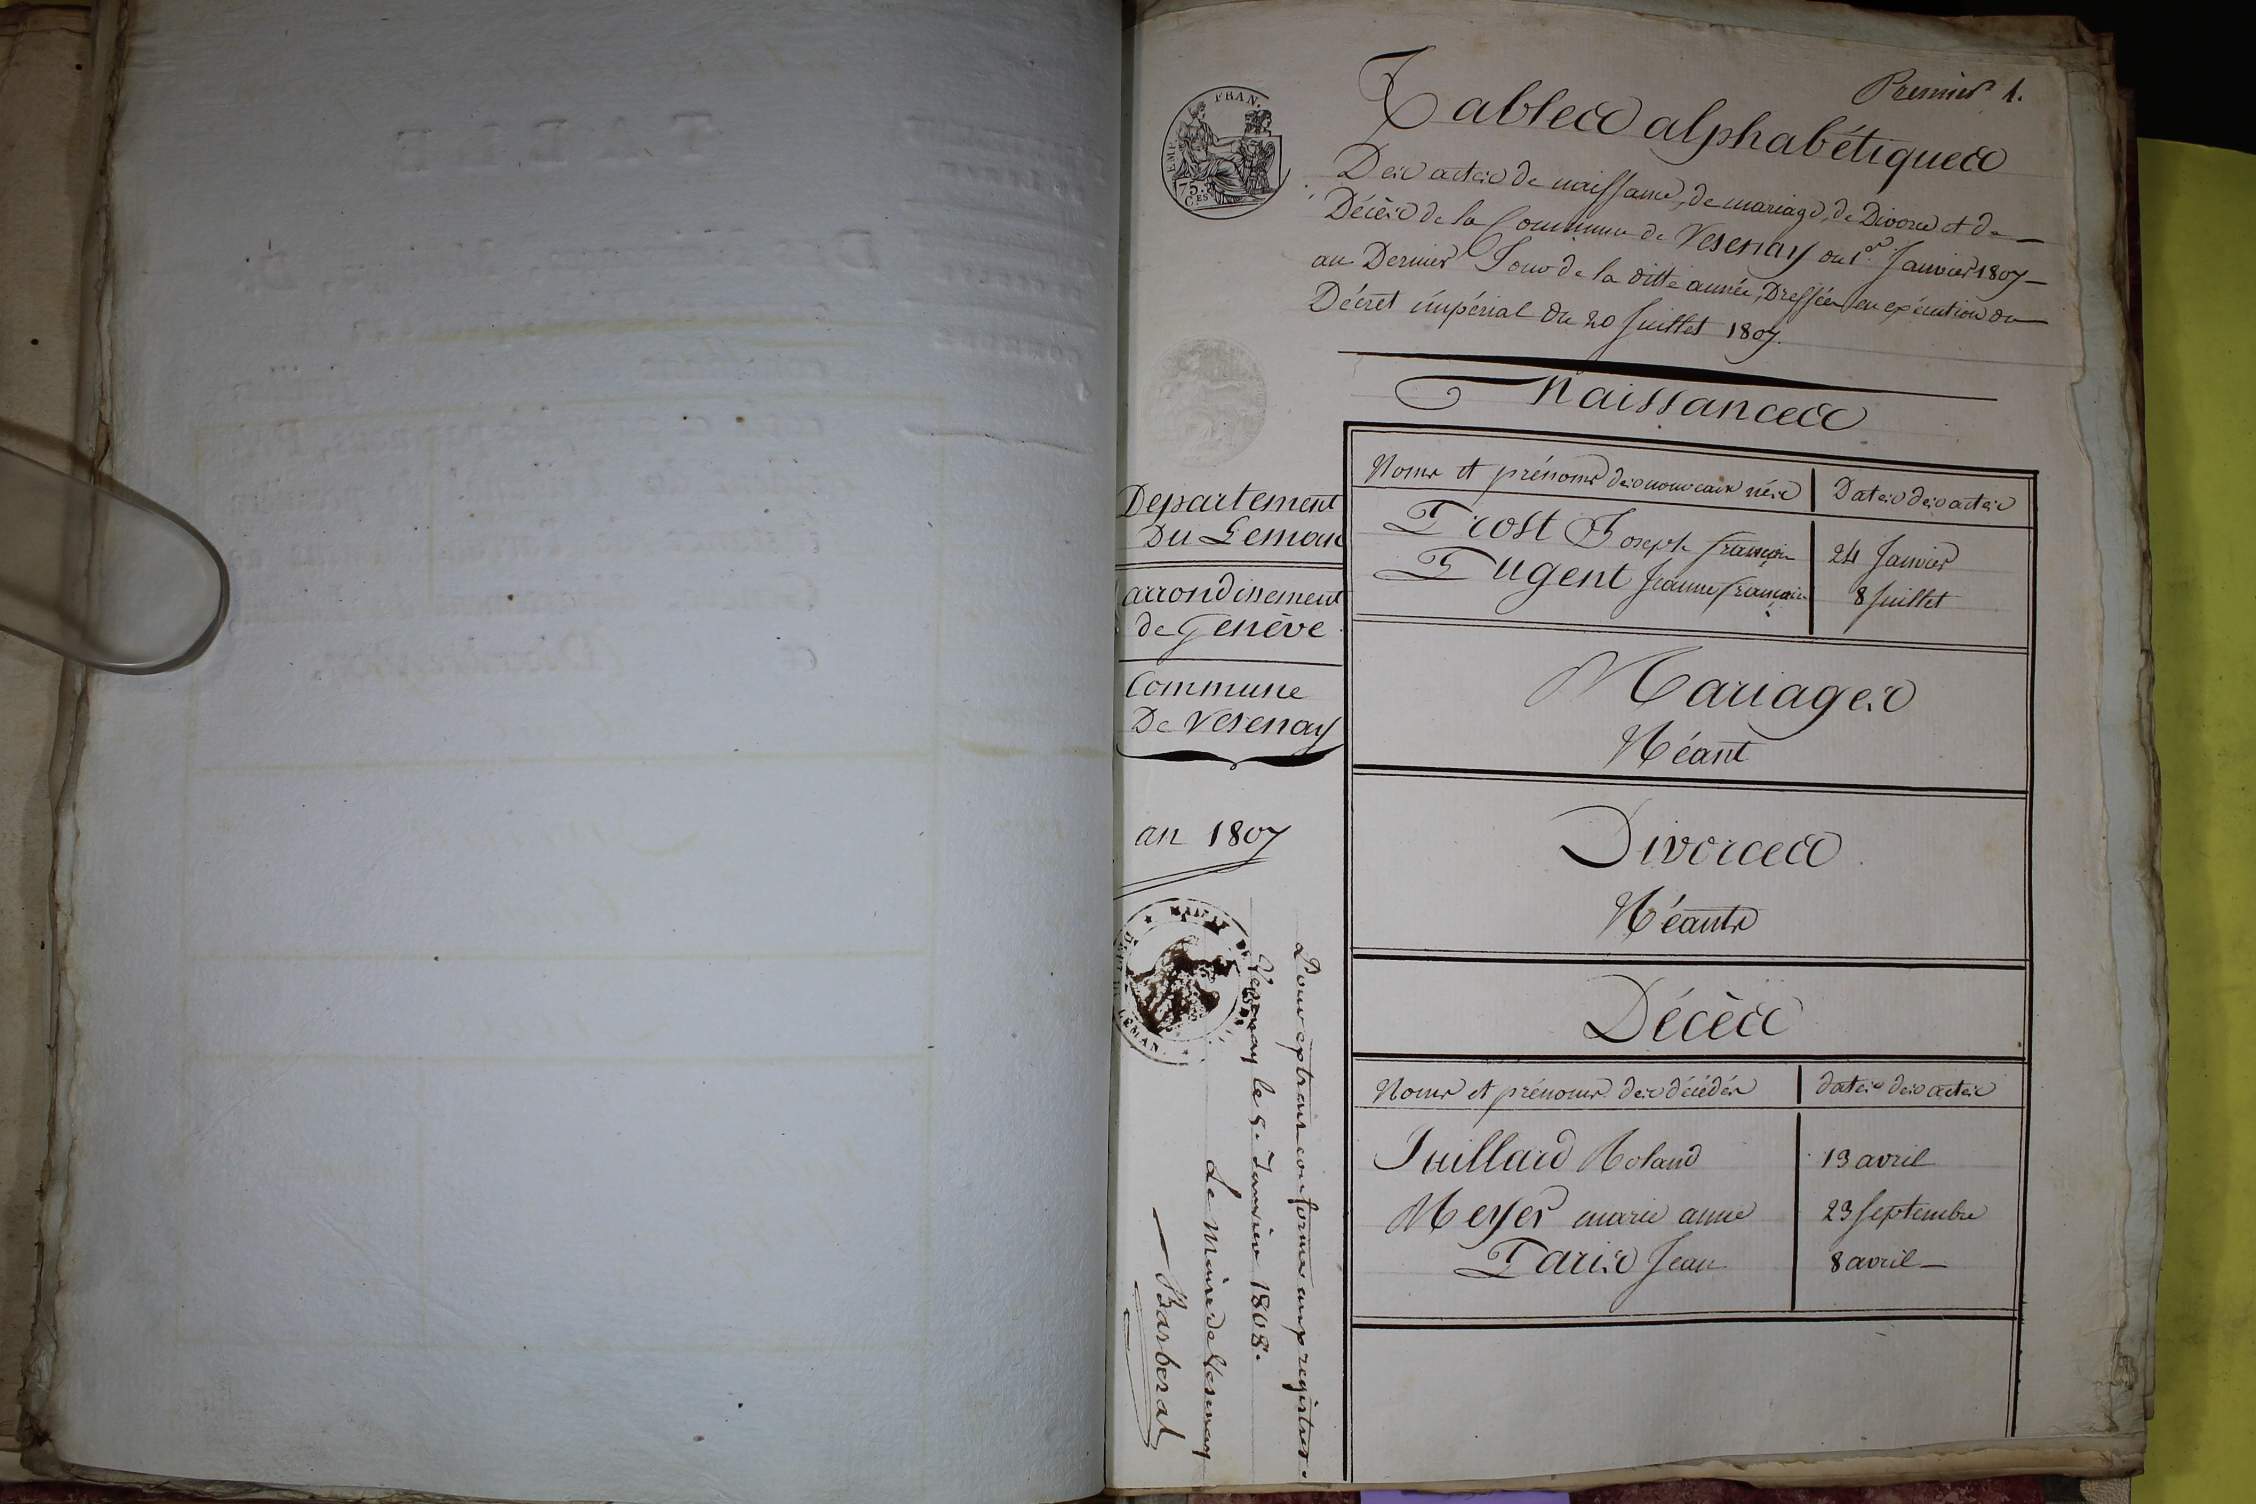 Premier 1.
EMP. FRAN.
75. C.ES
Tables alphabétiques
Des actes de naissance, de mariage, de Divorce et de
Décès de la Commune de Vesenay du 1.er Janvier 1807
au Dernier Jour de la ditte année, Dressées en exécution du
Décret impérial du 20 Juillet 1807.
Naissances
Departement
Du Leman
arrondissement
de Genève
Commune
De Vesenay
an 1807
Noms et prénoms des nouveaux nés
Dates des actes
Prost Joseph françois
24 Janvier
Pugent Jeanne françoise
8 Juillet
Mariages
Néant
Divorces
Néants
Décès
Noms et prénoms des décédés
dates des actes
Juillard Roland
13 avril
Meyer marie anne
23 septembre
Paris Jean
8 avril
Pour extrait conforme aux registres.
Vesenay le 5. Janvier 1808.
Le Maire de Vesenay
Barberat
LEMAN